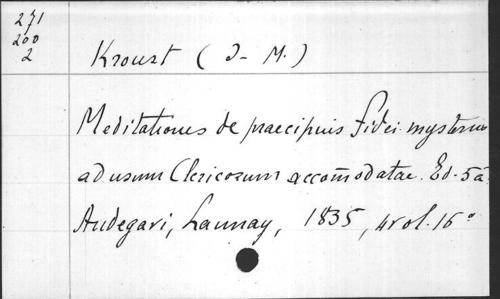 271
200
2
Kroust (J-M.)
Meditationes de praecipuis fidei mysteriis
ad usum Clericorum accom̃odatae. Ed-5ā
Andegavi, Launay, 1835, 4 vol. 16°